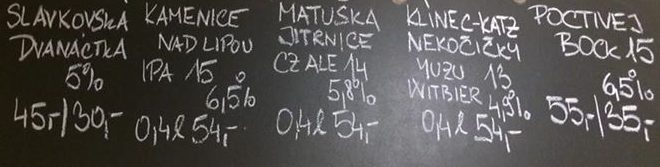 SLAVKOVSKÁ
DVANÁCTKA
5%
45,-/30,-
KAMENICE
NAD LIPOU
IPA 15
6,5%
0,4l 54,-
MATUŠKA
JITRNICE
CZ ALE 14
5,8%
0,4l 54,-
KLÍNEC-KATZ
NEKOČIČKY
YUZU 13
WITBIER 4,9%
0,4l 54,-
POCTIVEJ
BOCK 15
6,5%
55,-/35,-